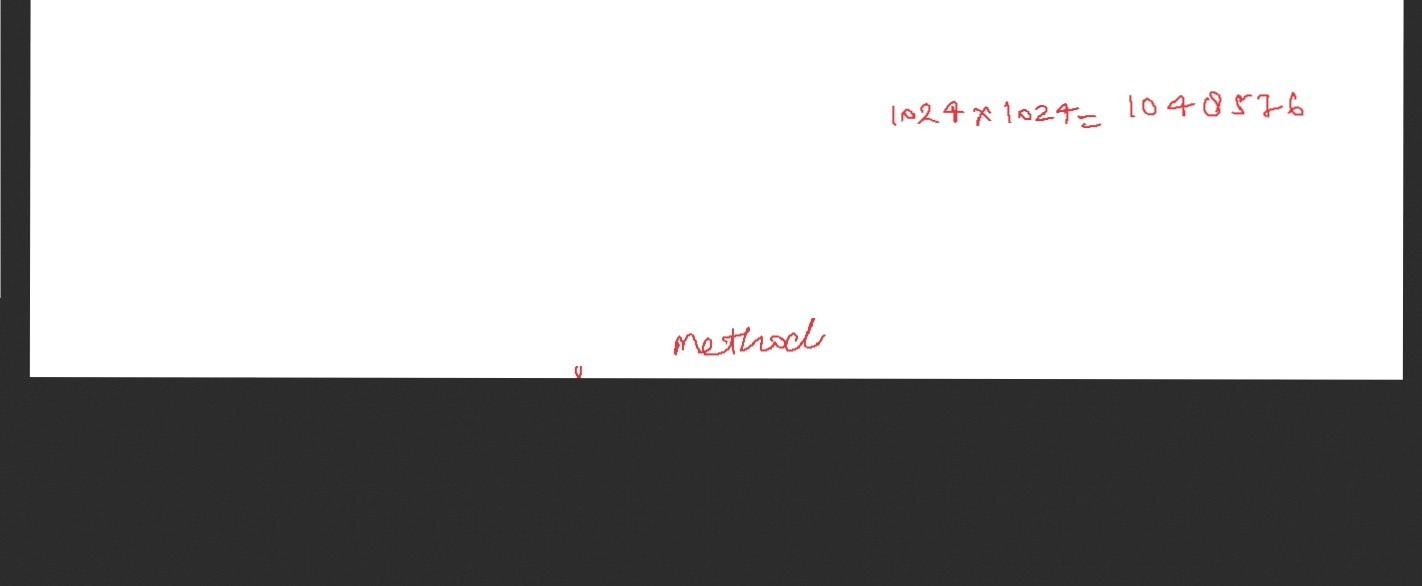 1024×1024= 1048576
method